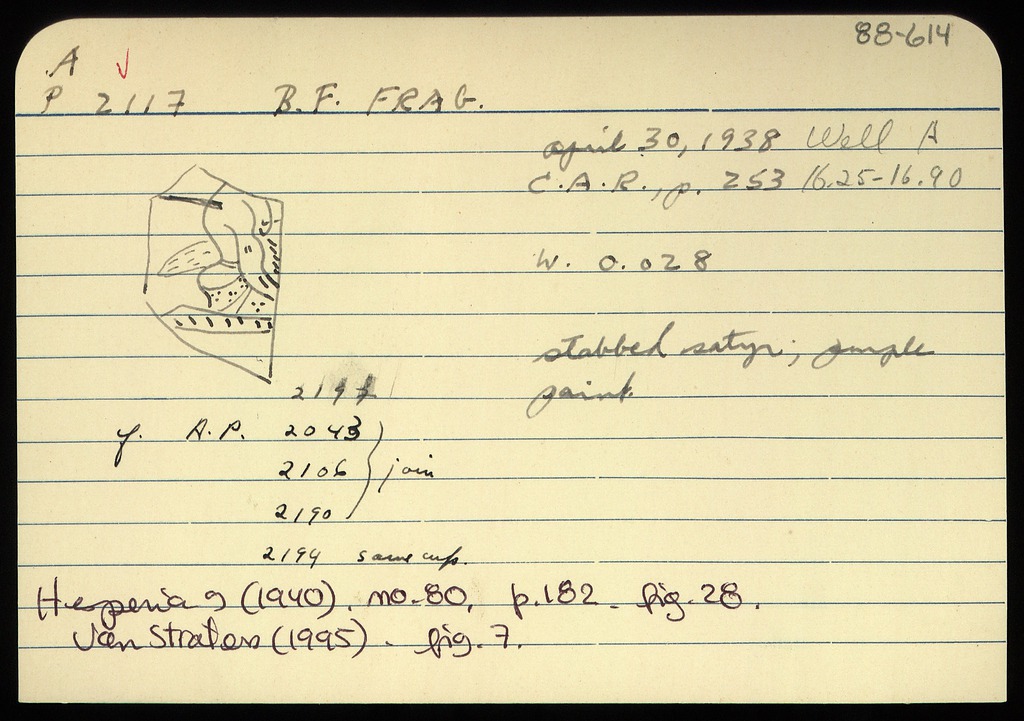 88-614
A ✓
P 2117 B.F. FRAG.
april 30, 1938 Well A
C.A.R., p. 253 16.25-16.90
W. 0.028
stabbed satyr; purple
paint.
219
cf. A.P. 2043
2106 join
2190
2194 same cup.
Hesperia 9 (1940). no. 80, p. 182. fig. 28.
Van Straten (1995). fig. 7.